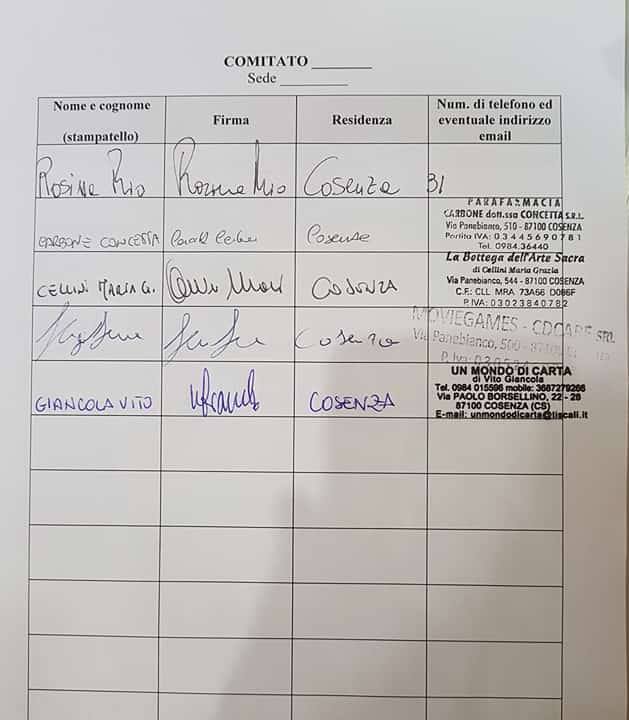 COMITATO ________
Sede __________
Nome e cognome
(stampatello)
Firma
Residenza
Num. di telefono ed
eventuale indirizzo
email
Rosina Rio
Cosenza
31
CARBONE CONCETTA
Cosenza
PARAFARMACIA
CARBONE dott.ssa CONCETTA S.R.L.
Via Panebianco, 510 - 87100 COSENZA
Partita IVA: 03445690781
Tel. 0984.36440
CELLINI MARIA G.
COSENZA
La Bottega dell'Arte Sacra
di Cellini Maria Grazia
Via Panebianco, 544 - 87100 COSENZA
C.F.: CLL MRA 73A66 D086F
P.IVA: 03023840782
Cosenza
MOVIEGAMES -
Via Panebianco, 500 -
P. Iva:
GIANCOLA VITO
COSENZA
UN MONDO DI CARTA
di Vito Giancola
Tel. 0984 015596 mobile: 3687279266
Via PAOLO BORSELLINO, 22 - 28
87100 COSENZA (CS)
E-mail: unmondodicarta@tiscali.it